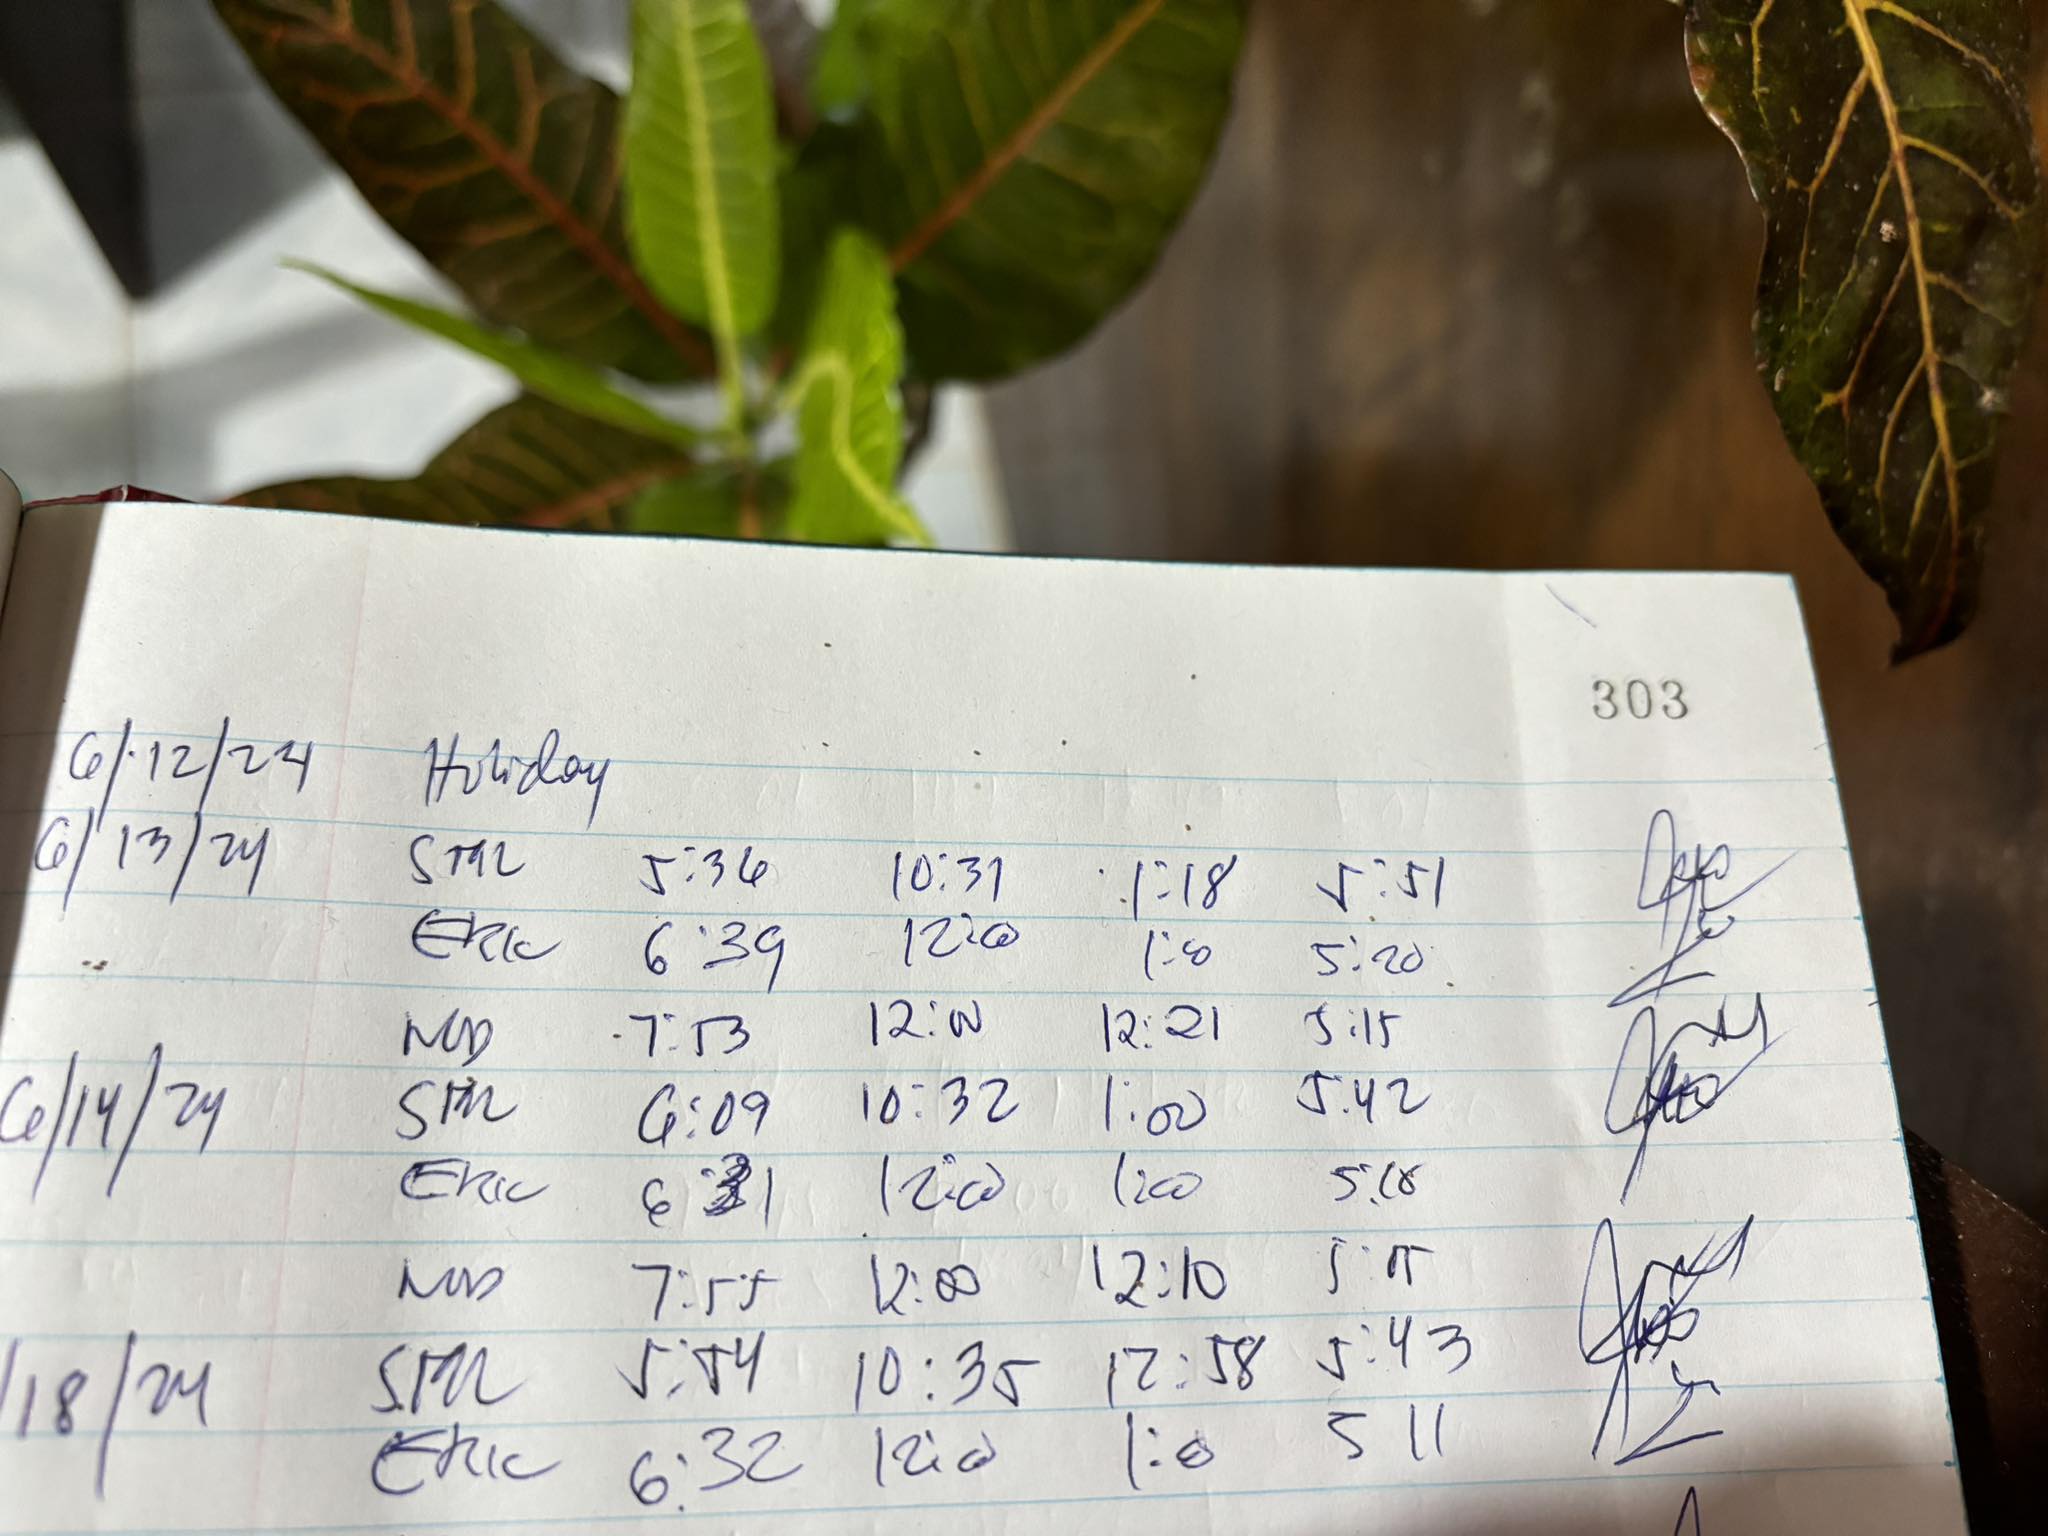 303
6/12/24 Holiday
6/13/24 5:36 10:31 1:18 5:51
ERIC 6:39 12:00 1:0 5:20
7:53 12:00 12:21 5:15
6/14/24 6:09 10:32 1:00 5:42
ERIC 6:31 12:00 1:00 5:18
7:55 12:00 12:10 5:15
/18/24 5:54 10:35 12:58 5:43
ERIC 6:32 12:0 1:0 5 11